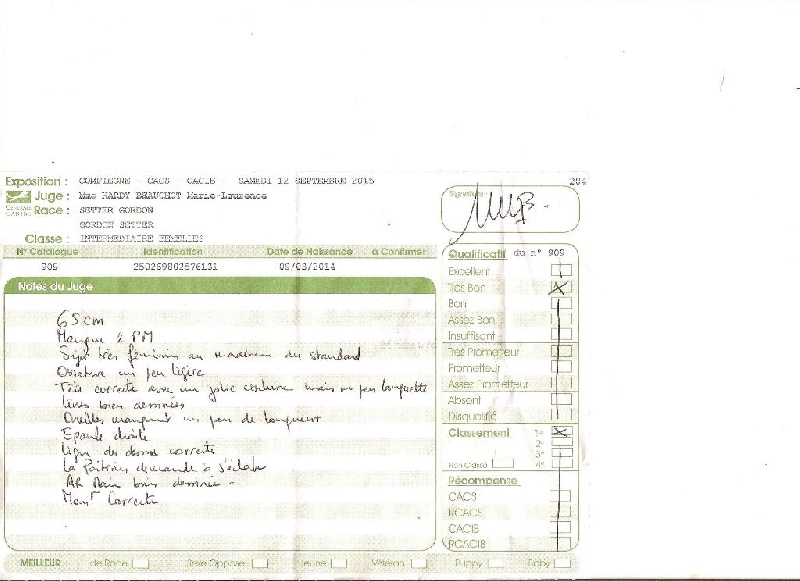 Exposition : COMPIEGNE - CACS - CACIB - SAMEDI 12 SEPTEMBRE 2015
284
Juge : Mme HARDY BEAUCHOT Marie-Laurence
Signature :
Race : SETTER GORDON
GORDON SETTER
Classe : INTERMEDIAIRE FEMELLES
N° Catalogue Identification Date de Naissance à Confirmer
909 250269802576131 08/03/2014
Notes du Juge
65 cm
Manque 2 PM
Sujet très féminin au maximum du standard
Ossature un peu légère
Tête correcte avec un jolie mais un peu longuette
lèvres bien dessinées
Oreilles manquant un peu de longueur
Epaule droite
Ligne de dessus correcte
La Poitrine demande à s'éclater
AR Main bien
Mouvt Correct
Qualificatif du n° 909
Excellent
Très Bon
Bon
Assez Bon
Insuffisant
Très Prometteur
Prometteur
Assez Prometteur
Absent
Disqualifié
Classement 1°
2°
3°
Non Classé 4°
Récompense
CACS
RCACS
CACIB
RCACIB
MEILLEUR de Race Sexe Opposé Jeune Vétéran Puppy Baby